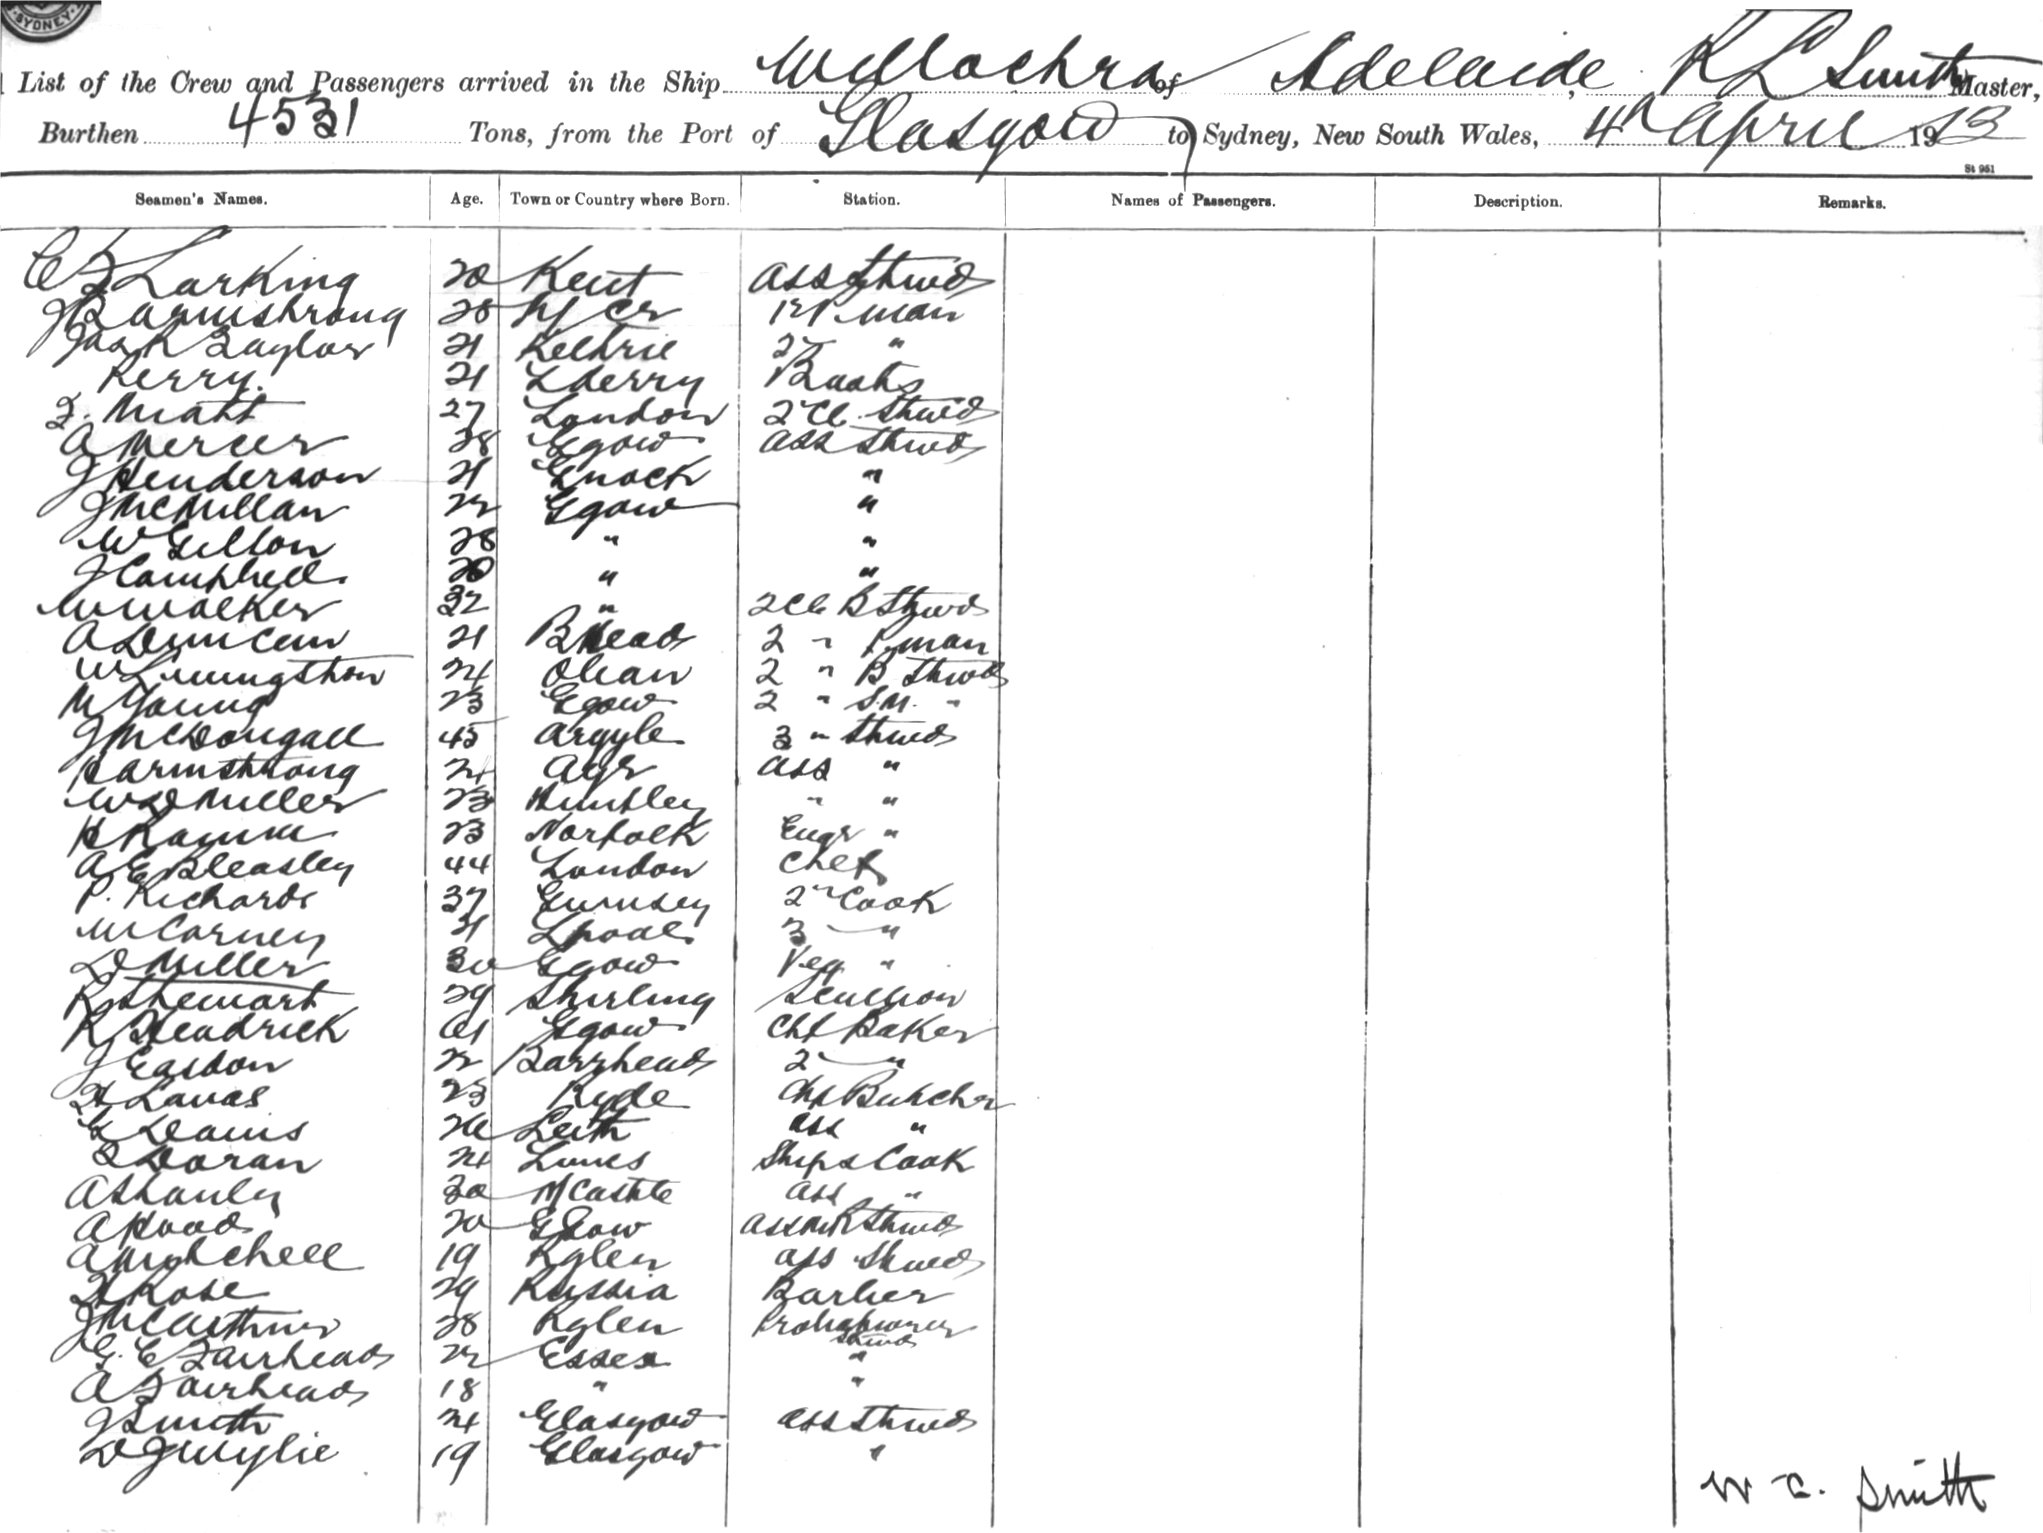 SYDNEY
List of the Crew and Passengers arrived in the Ship Willochra of Adelaide, R L Smith Master,
Burthen 4531 Tons, from the Port of Glasgow to Sydney, New South Wales, 4th April 1913
St 951
Seamen's Names. Age. Town or Country where Born. Station. Names of Passengers. Description. Remarks.
Larking 20 Kent Ass Stwd
Armstrong 28 P. man
Jas Taylor 21 2 "
Kerry. 21 L Derry Boots
27 London 2 Cl. Stwd
A Mercer 28 Ggow Ass Stwd
J Henderson 21 Gnock "
J McMillan 22 Ggow "
W Gillon 28 " "
J Campbell 20 " "
W Walker 32 " 2 Cl B Stwd
A Duncan 21 B Head 2 " P. man
W Livingston 24 Oban 2 " B Stwd
M Young 23 Ggow 2 " S.M. "
J McDougall 45 Argyle 3 " Stwd
Armstrong 24 Ayr Ass "
W D Miller 23 Huntley " "
H 23 Norfolk Engr "
A E Bleasley 44 London Chef
P. Richards 37 Gurnsey 2nd Cook
M Carney 21 Lpool 3 "
D Miller 30 Ggow Veg "
R Stewart 29 Stirling Scullion
R Headrick 61 Ggow Chf Baker
J Easdon 22 Barrhead 2 "
23 Ryde Chf Butcher
Davis 26 Leith Ass "
Doran 24 Ships Cook
A Stanley 20 N Castle Ass "
A Hood 20 Ggow Ass Stwd
A Mitchell 19 Rglen Ass Stwd
Rose 29 Russia Barber
J McArthur 28 Rglen Probationer Stwd
G. E Fairhead 22 Essex "
A Fairhead 18 " "
J Smith 24 Glasgow Ass Stwd
D J Wylie 19 Glasgow "
W C. Smith